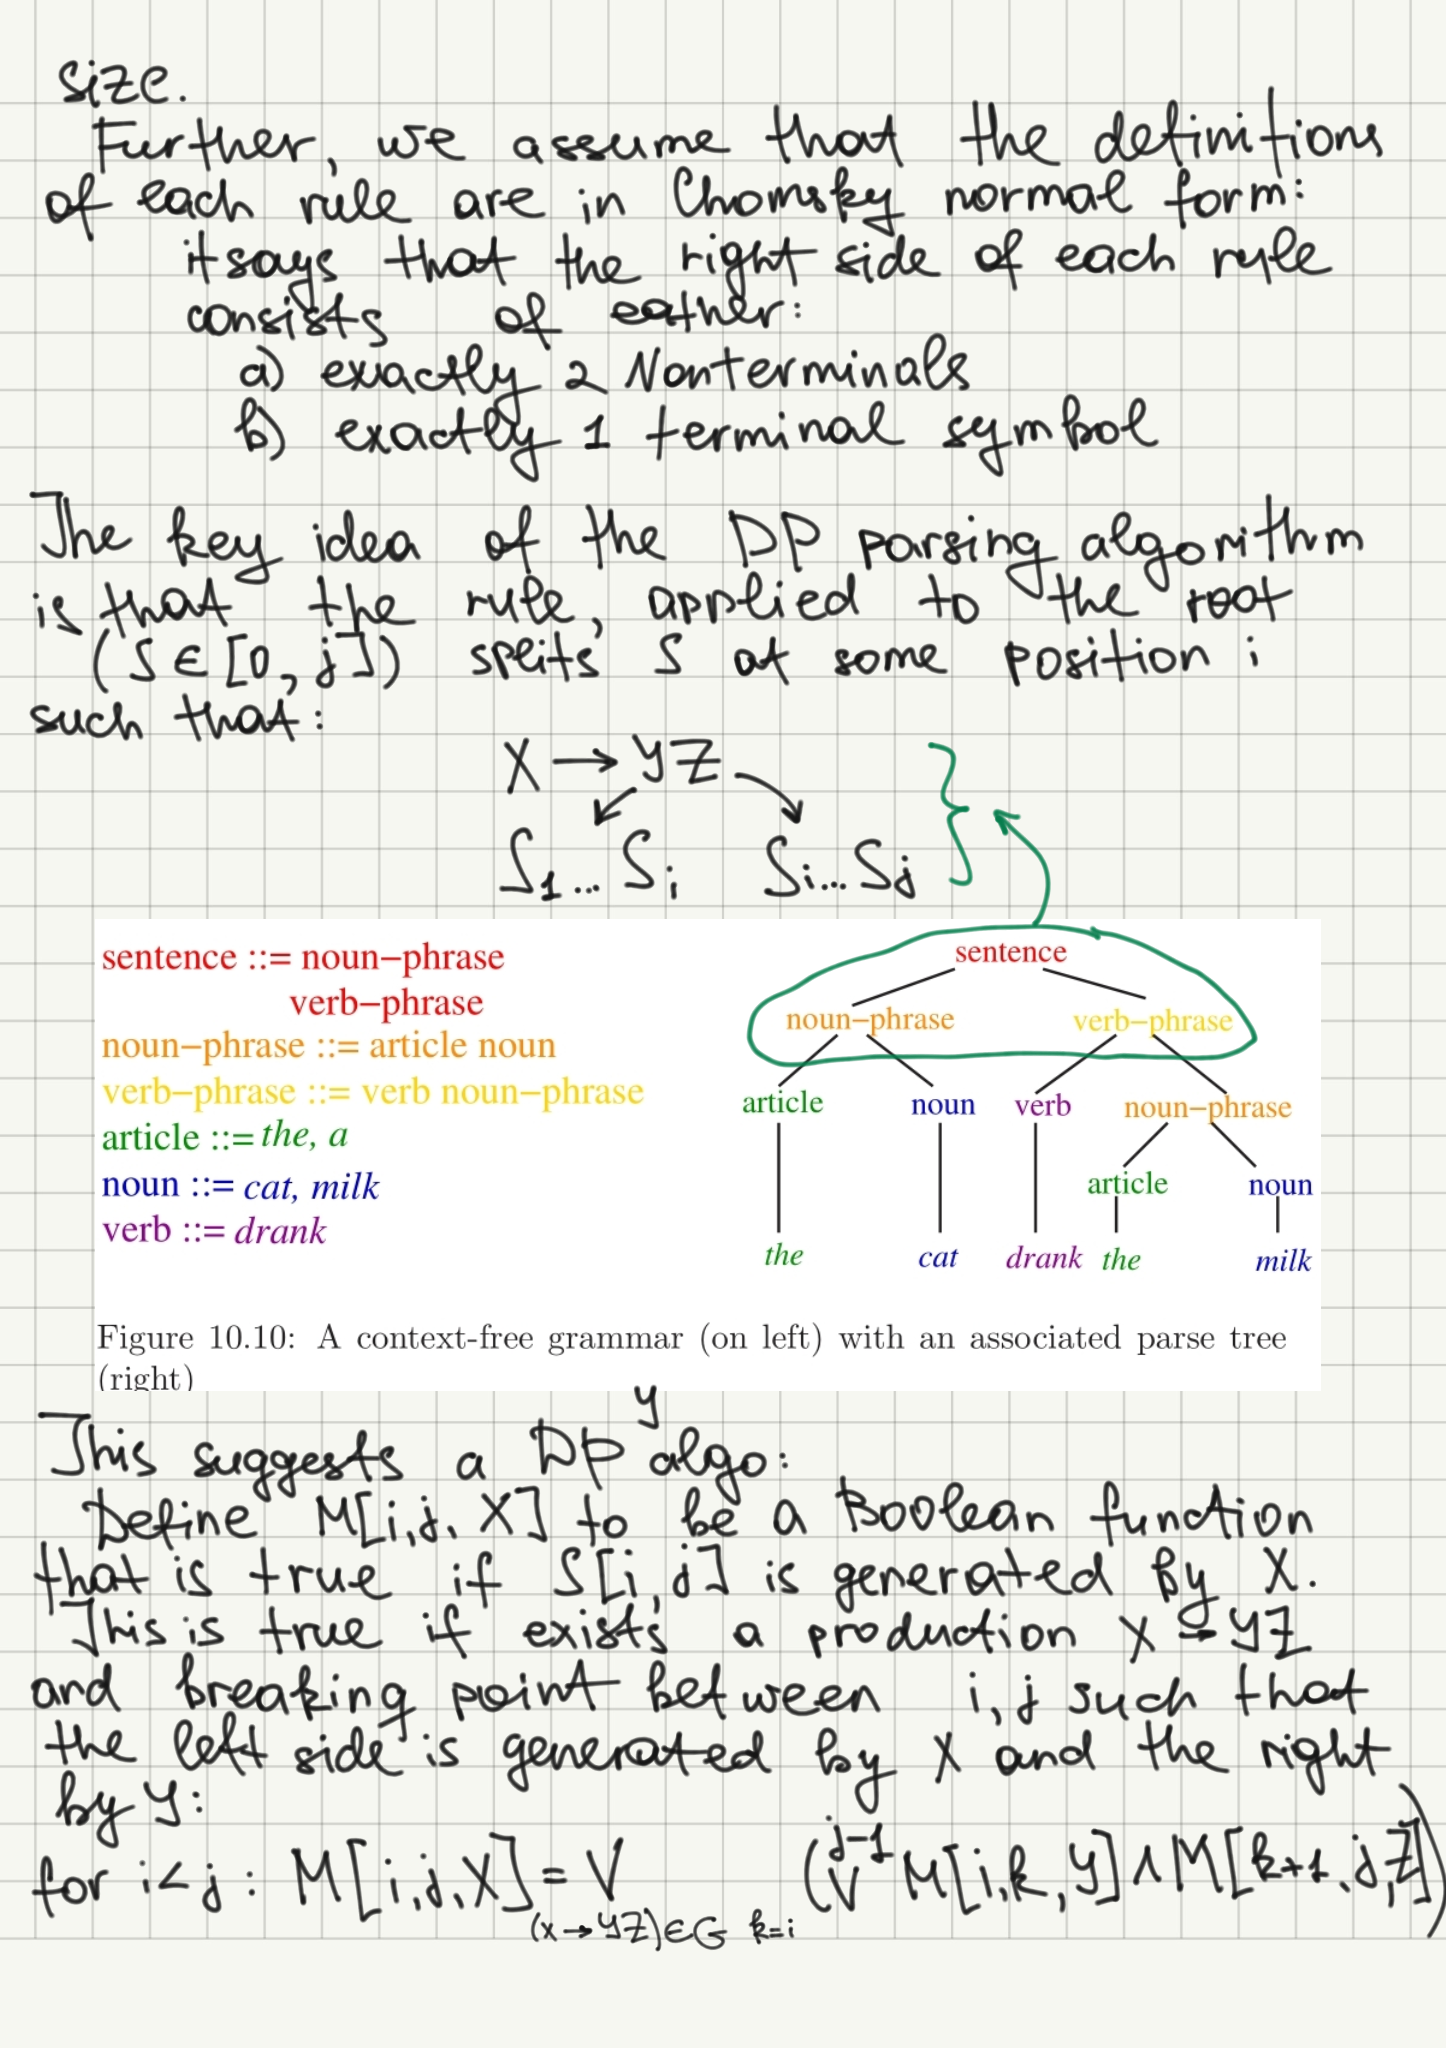 size.
Further, we assume that the definitions
of each rule are in Chomsky normal form:
it says that the right side of each rule
consists of eather:
a) exactly 2 Nonterminals
b) exactly 1 terminal symbol
The key idea of the DP parsing algorithm
is that the rule, applied to the root
(S ∈ [0, j]) splits S at some position i
such that:
X → YZ
S1... Si Si... Sj
sentence ::= noun–phrase
verb–phrase
noun–phrase ::= article noun
verb–phrase ::= verb noun–phrase
article ::= the, a
noun ::= cat, milk
verb ::= drank
sentence
noun–phrase verb–phrase
article noun verb noun–phrase
article noun
the cat drank the milk
Figure 10.10: A context-free grammar (on left) with an associated parse tree
(right)
y
This suggests a DP algo:
Define M[i,j,X] to be a Boolean function
that is true if S[i,j] is generated by X.
This is true if exists a production X → YZ
and breaking point between i,j such that
the left side is generated by X and the right
by Y:
for i<j: M[i,j,X] = V (V M[i,k,Y] ∧ M[k+1,j,Z])
j-1
(X → YZ) ∈ G k=i